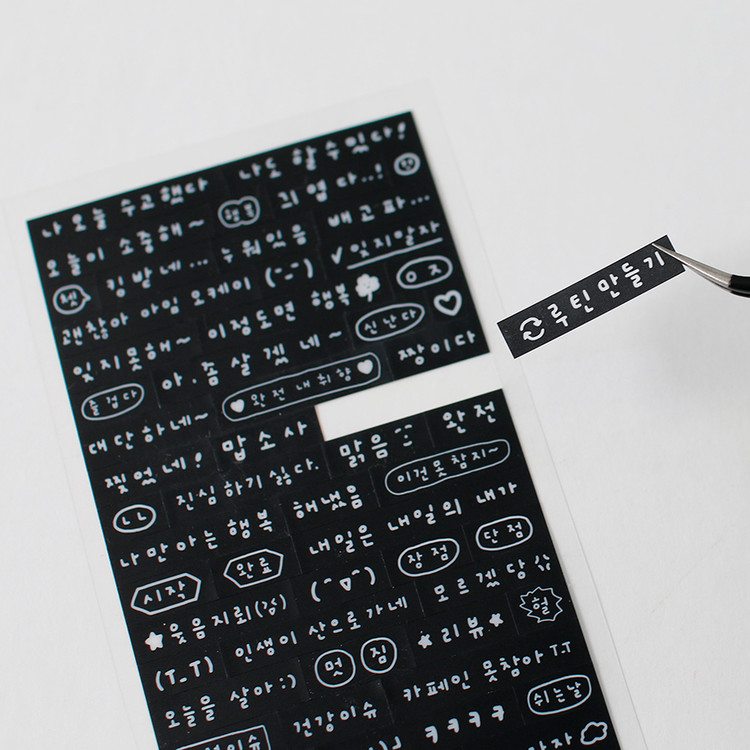 나 오늘 수고했다 나도 할 수 있다!
오늘이 소중해~ 행복 귀엽다..!
헷 킹받네... 누워있음 배고파...
괜찮아 아임 오케이 (-_-) ✓잊지말자
잊지못해~ 이정도면 행복 ㅇㅈ
즐겁다 아.. 좀 살겠네~ 신난다
대단하네~ 완전 내 취향 짱이다
찢었네! 맙소사 맑음 완전
ㄴㄴ 진심 하기싫다. 해냈음 이건못참지~
나만아는행복 내일은 내일의 내가
시작 완료 장점 단점
웃음지뢰(감) (^▽^) 모르겠당 헐
(T_T) 인생이 산으로가네 ★리뷰★
오늘을 살아:) 멋짐 카페인 못참아 T.T
건강이슈 ㅋㅋㅋㅋ 쉬는날
루틴만들기